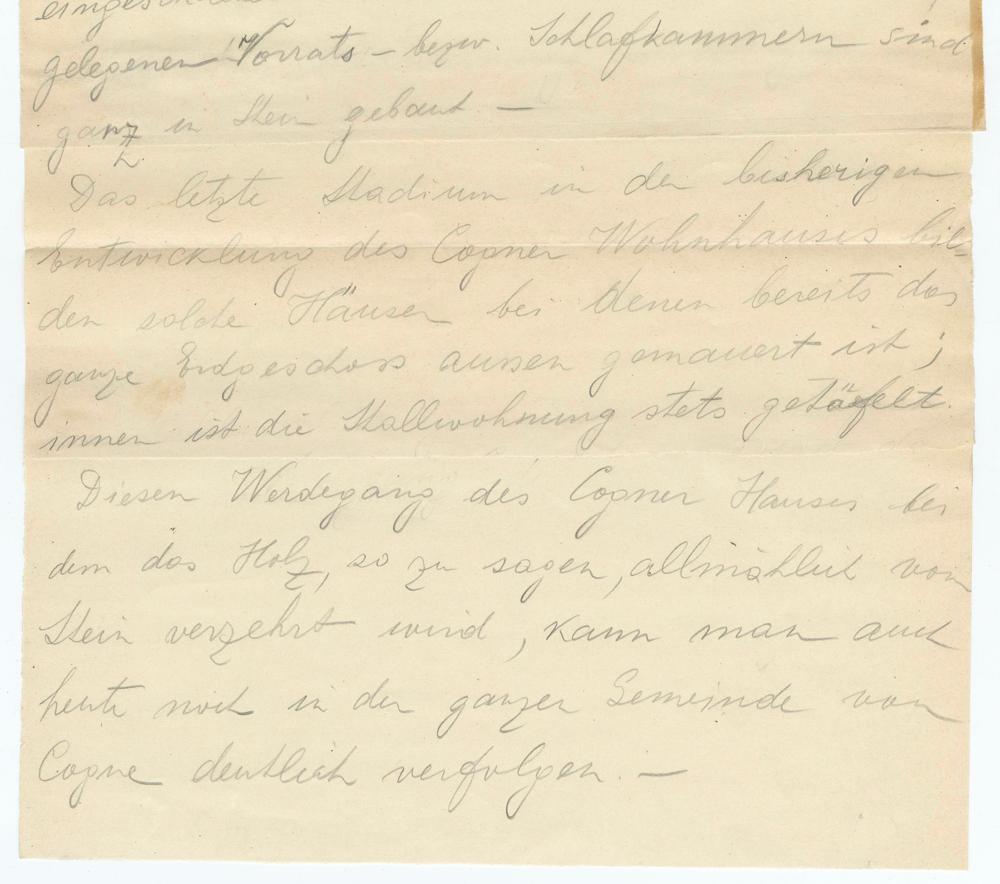 gelegenen Vorrats - bezw. Schlafkammern sind
ganz in Stein gebaut. —
Das letzte Stadium in der bisherigen
Entwicklung des Cogner Wohnhauses bil-
den solche Häuser bei denen bereits das
ganze Erdgeschoss aussen gemauert ist ;
innen ist die Stallwohnung stets getäfelt.
Diesen Werdegang des Cogner Hauses bei
dem das Holz, so zu sagen, allmählich vom
Stein verzehrt wird, kann man auch
heute noch in der ganzen Gemeinde von
Cogne deutlich verfolgen. —